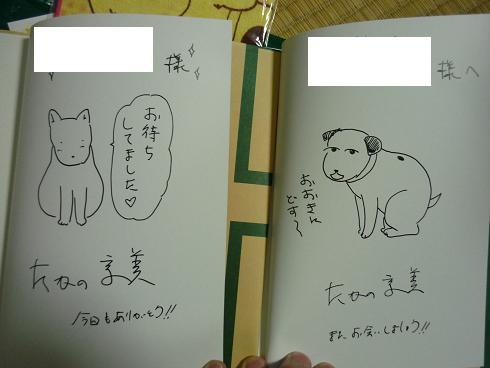 様
お待ち
してました♡
たかの 宗美
今日もありがとう!!
様へ
おおきに
どす〜
たかの 宗美
また、お会いしましょう!!